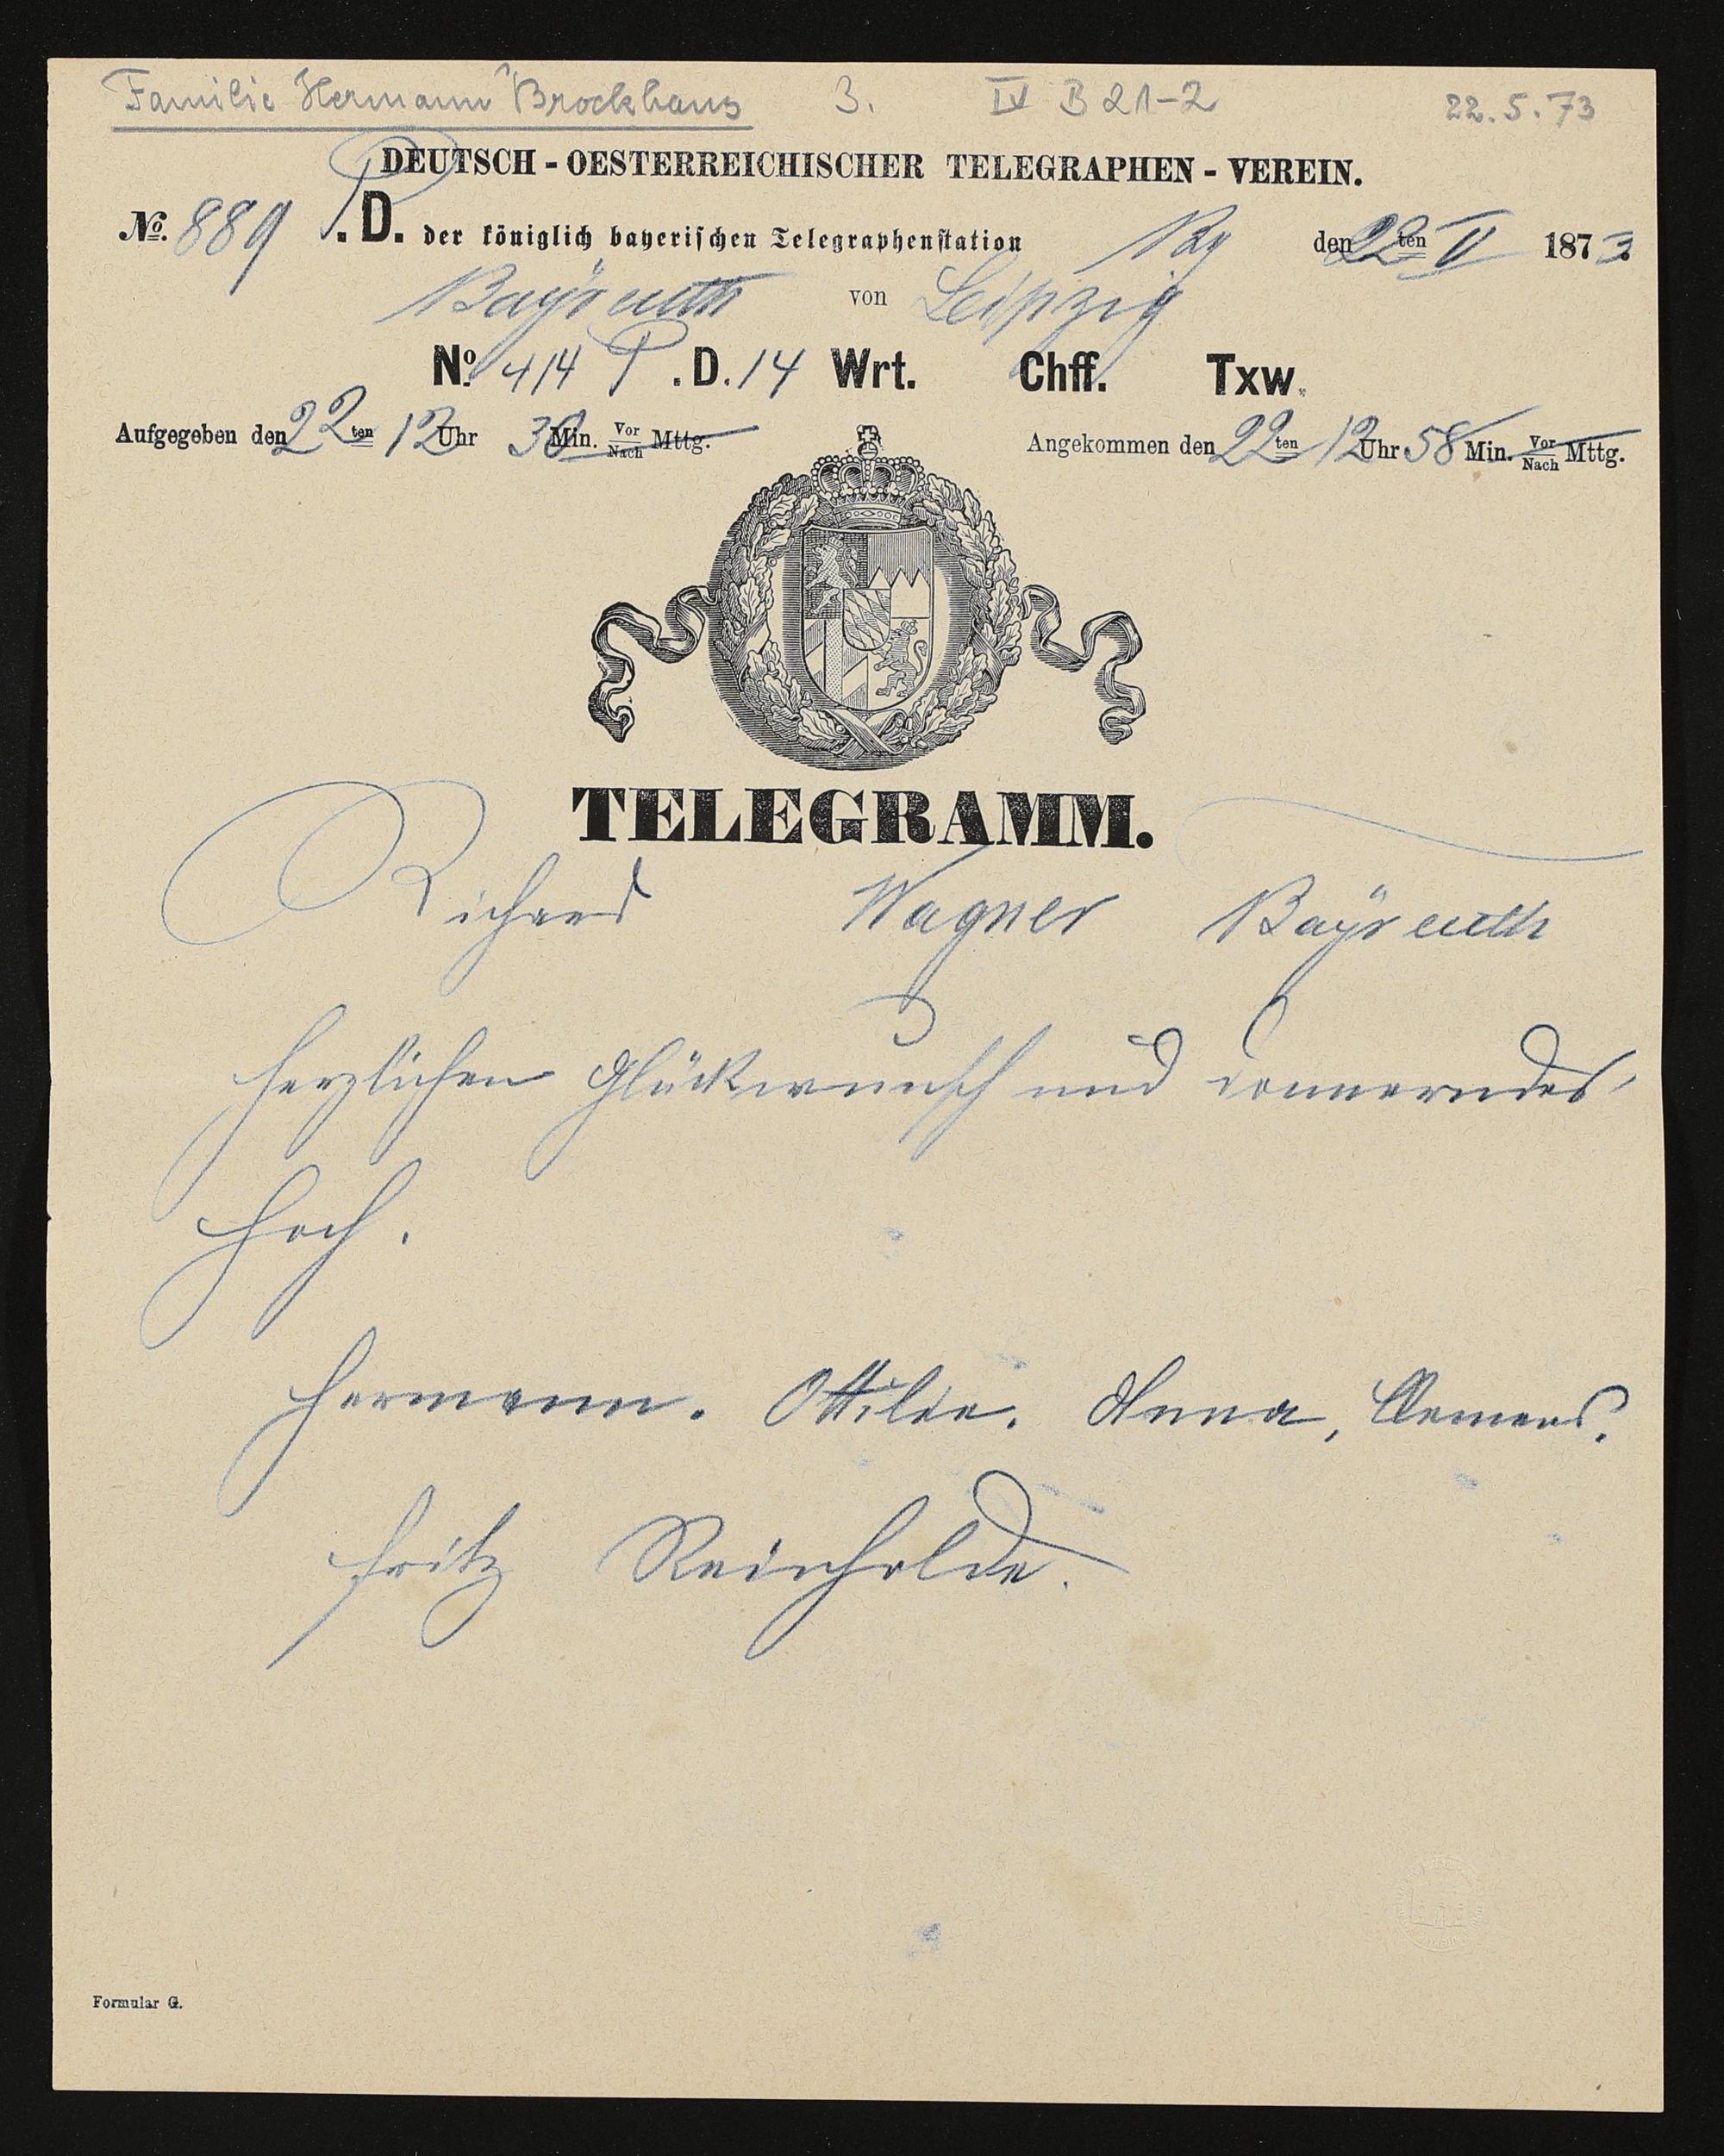 Familie Hermann Brockhaus 3. IV B 21-2 22.5.73
DEUTSCH-OESTERREICHISCHER TELEGRAPHEN-VEREIN.
No. 889 P.D. der königlich bayerischen Telegraphenstation By den 22ten V 1873
Bayreuth von Leipzig
No. 414 P.D. 14 Wrt. Chff. Txw.
Aufgegeben den 22ten 12 Uhr 30 Min. Vor/Nach Mttg. Angekommen den 22ten 12 Uhr 58 Min. Vor/Nach Mttg.
TELEGRAMM.
Richard Wagner Bayreuth
herzlichen Glückwunsch und donnerndes
Hoch.
Hermann. Ottilie. Anna, Clemens.
Fritz Reinholde.
Formular G.